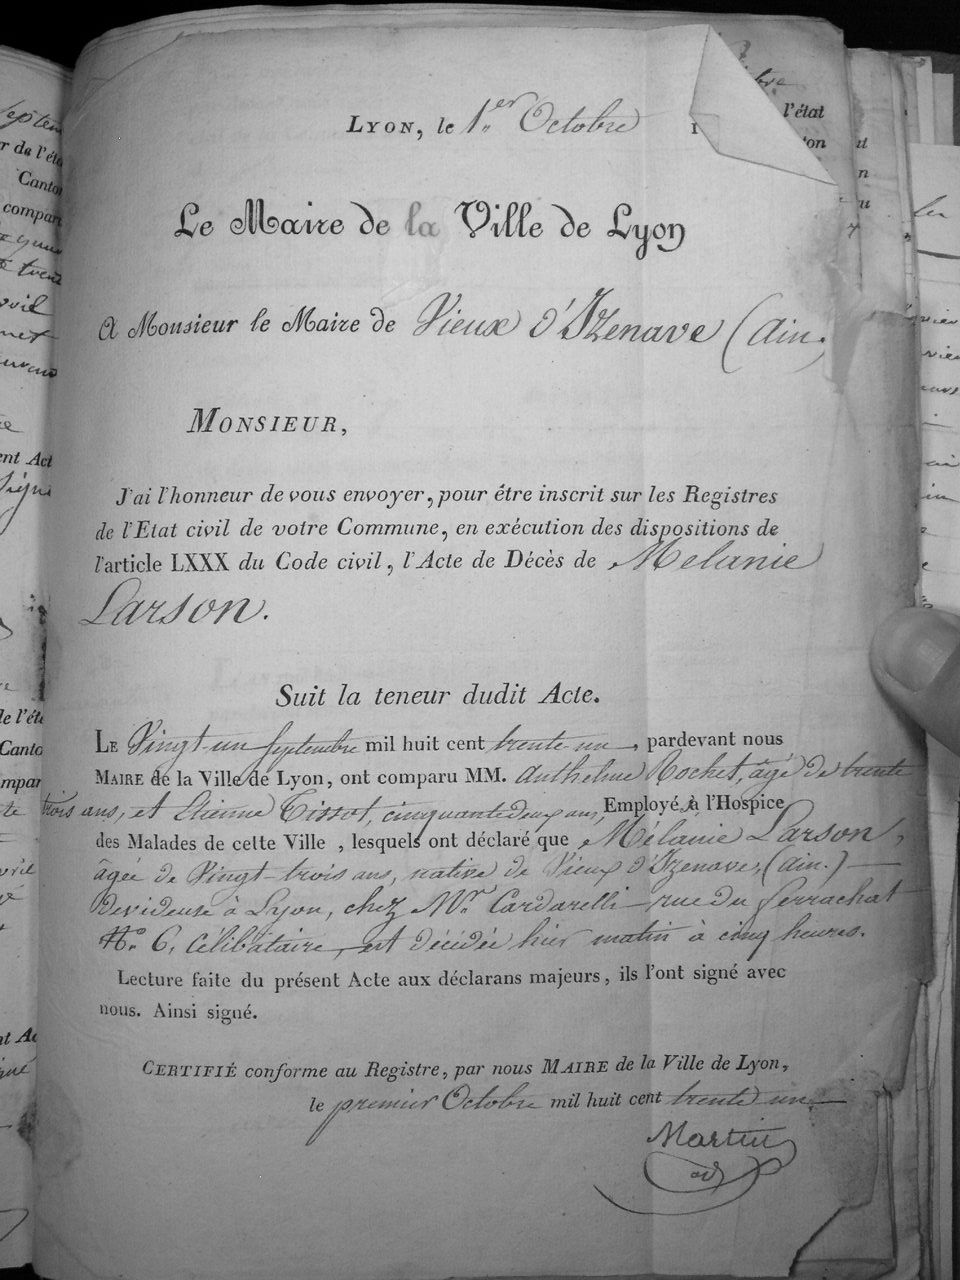 LYON, le 1.er Octobre
Le Maire de la Ville de Lyon
A Monsieur le Maire de Vieux d'Izenave (Ain.
MONSIEUR,
J'ai l'honneur de vous envoyer, pour être inscrit sur les Registres
de l'Etat civil de votre Commune, en exécution des dispositions de
l'article LXXX du Code civil, l'Acte de Décès de Mélanie
Larson.
Suit la teneur dudit Acte.
LE Vingt-un Septembre mil huit cent trente-un, pardevant nous
MAIRE de la Ville de Lyon, ont comparu MM. Anthelme Rochet, âgé de trente
trois ans, et Etienne Tissot, cinquante deux ans, Employé à l'Hospice
des Malades de cette Ville, lesquels ont déclaré que Mélanie Larson,
âgée de Vingt-trois ans, native de Vieux d'Izenave, (Ain.)
Devideuse à Lyon, chez Mr. Cardarelli rue du Serrachat
N.o 6, Célibataire, est décédée hier matin à cinq heures.
Lecture faite du présent Acte aux déclarans majeurs, ils l'ont signé avec
nous. Ainsi signé.
CERTIFIÉ conforme au Registre, par nous MAIRE de la Ville de Lyon,
le premier Octobre mil huit cent trente un
Martin
l'état